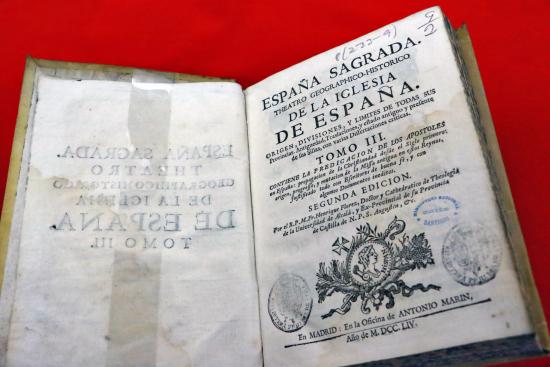 ESPAÑA SAGRADA.
THEATRO
GEOGRAPHICO-HISTORICO
DE LA IGLESIA
DE ESPAÑA.
TOMO III.
ESPAÑA SAGRADA.
THEATRO GEOGRAPHICO-HISTORICO
DE LA IGLESIA
DE ESPAÑA.
ORIGEN, DIVISIONES, Y LIMITES DE TODAS SUS
Provincias, Antiguedad, Traslaciones, y estado antiguo y presente
de sus Sillas, con varias Dissertaciones criticas.
TOMO III.
CONTIENE LA PREDICACION DE LOS APOSTOLES
en España: propagacion de la Christiandad desde el Siglo primero:
origen, progresso, y mutacion de la Missa antigua en estos Reynos,
justificado todo con Escritores de buena fé, y con
algunos Documentos ineditos.
SEGUNDA EDICION.
Por el R.P.M.Fr. Henrique Florez, Doctor y Cathedratico de Theologia
de la Universidad de Alcalá, y Ex-Provincial de su Provincia
de Castilla de N.P.S. Augustin, &c.
En MADRID: En la Oficina de ANTONIO MARIN,
Año de M.DCC.LIV.